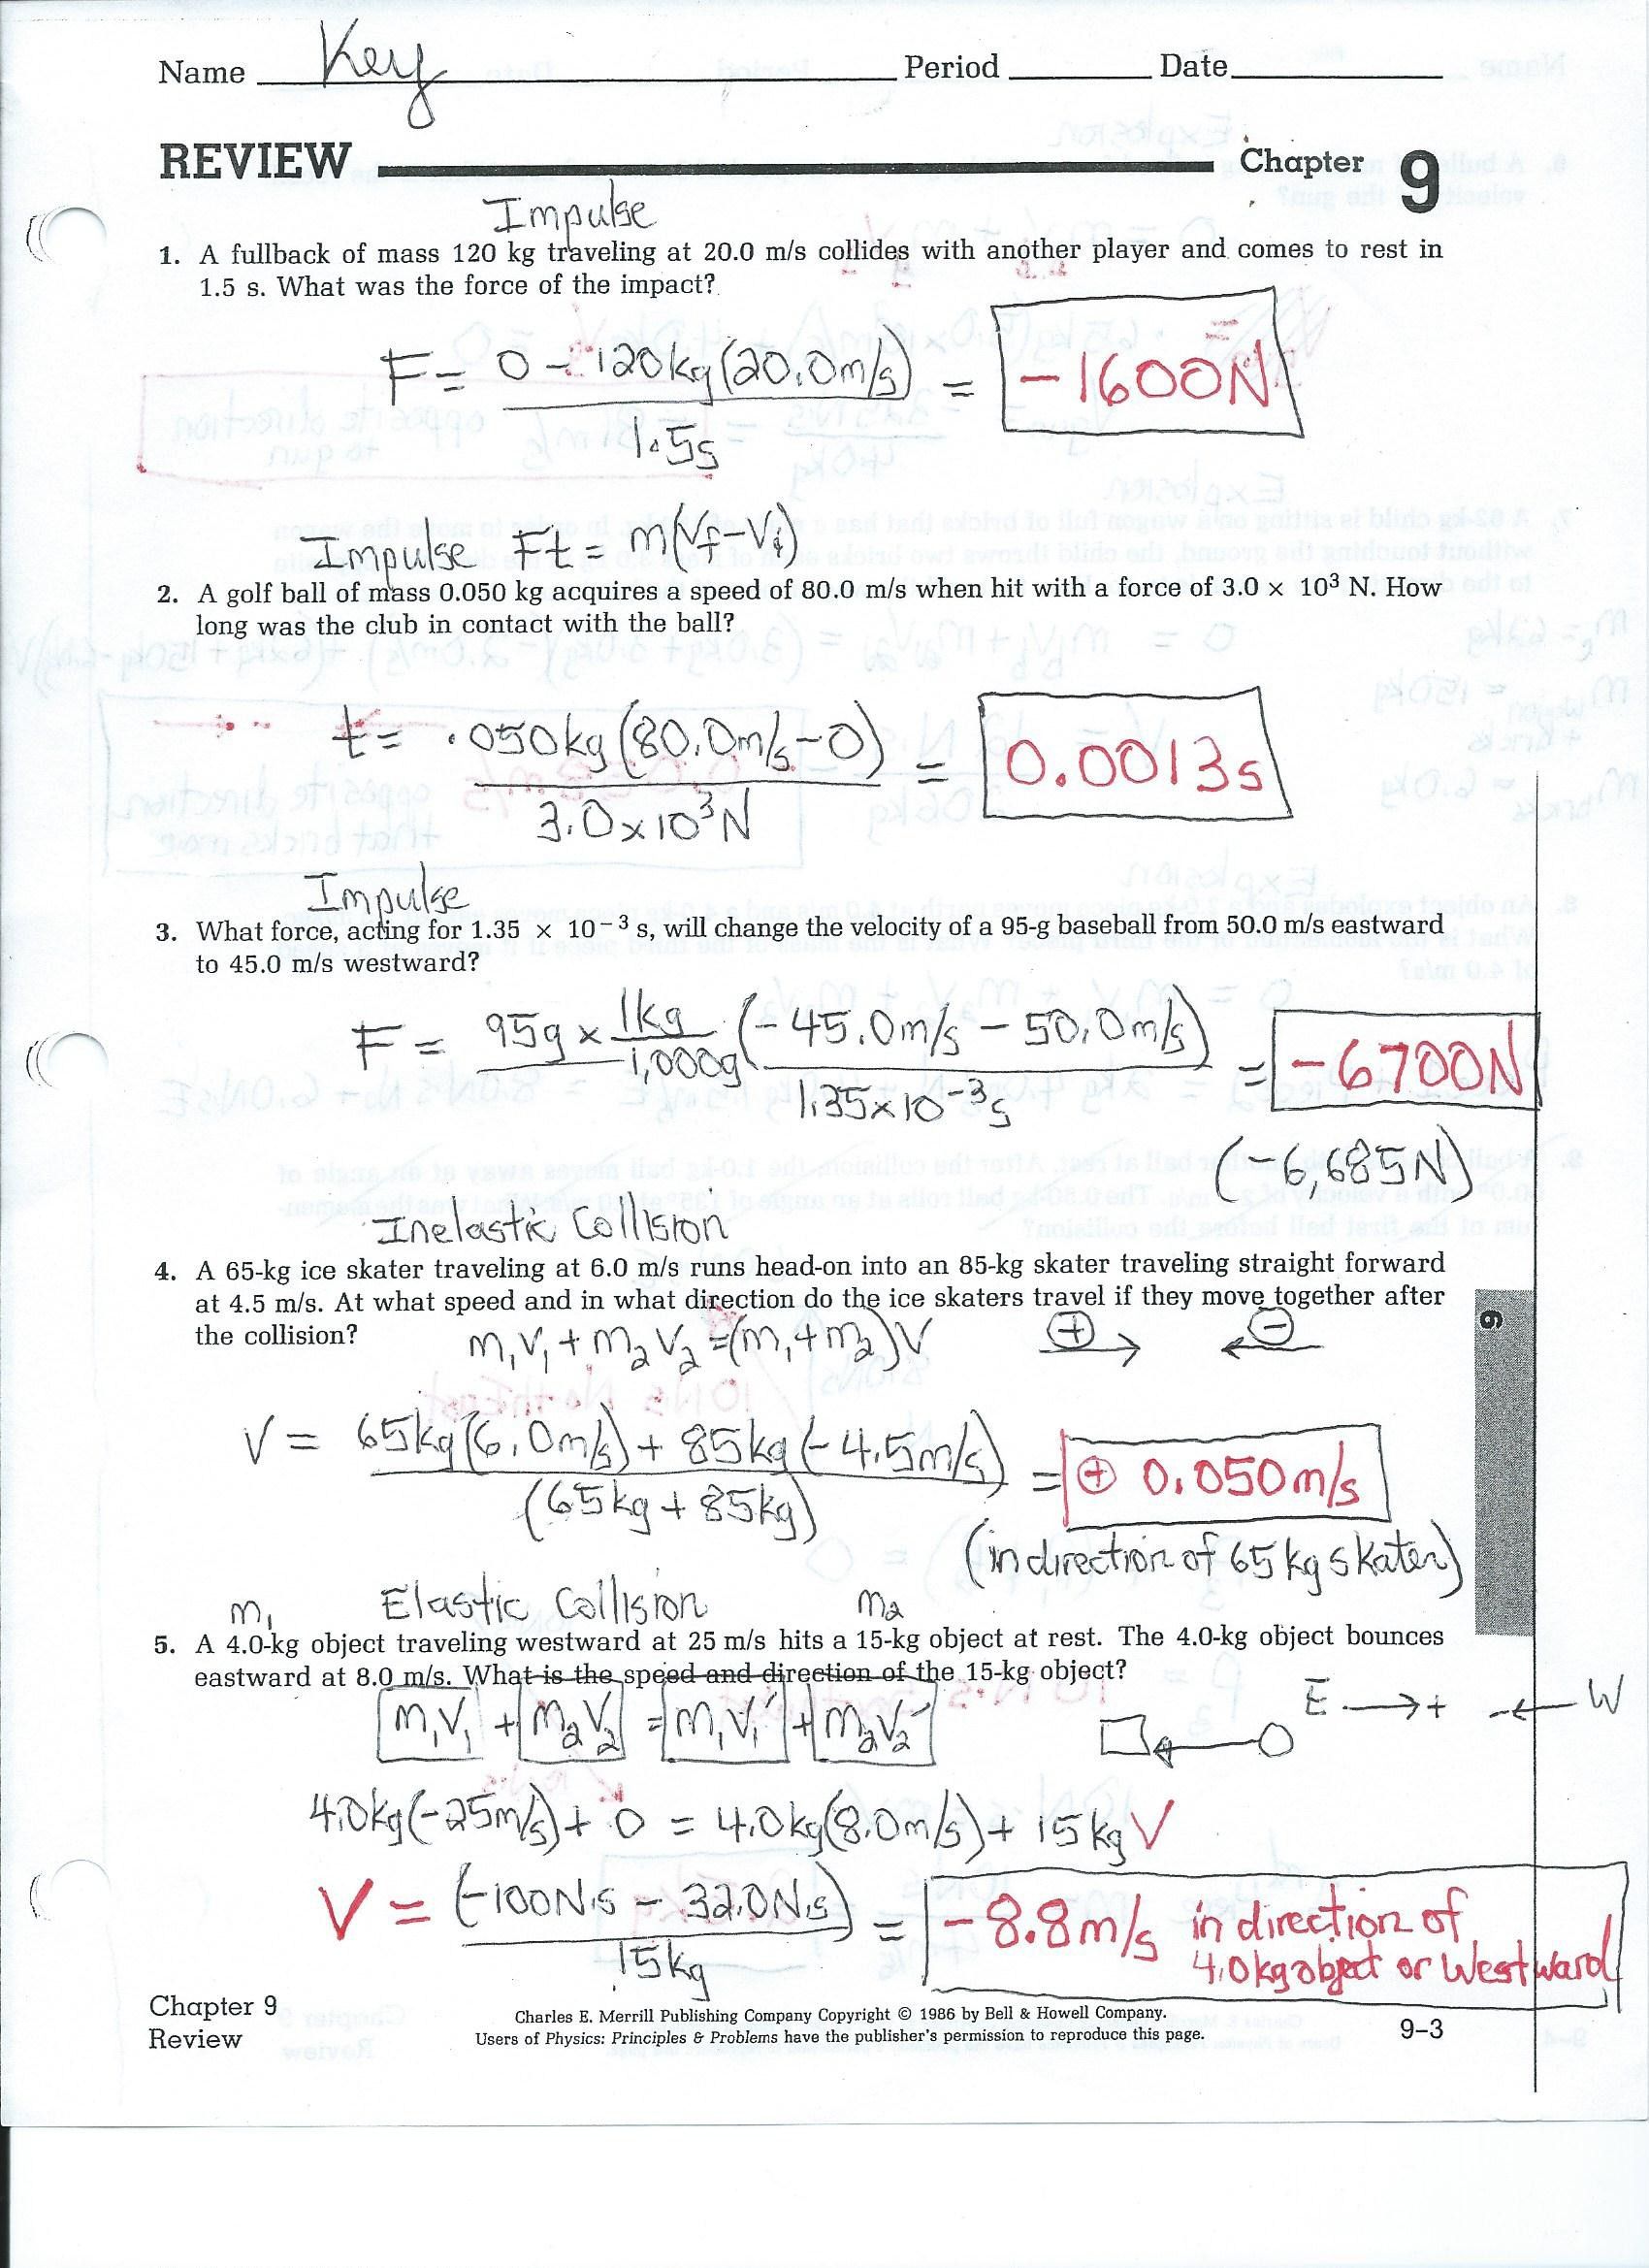 Name Key Period Date
REVIEW Chapter 9
Impulse
1. A fullback of mass 120 kg traveling at 20.0 m/s collides with another player and comes to rest in
1.5 s. What was the force of the impact?
F = 0 - 120kg(20.0m/s) = -1600N
1.5s
Impulse Ft = m(Vf-Vi)
2. A golf ball of mass 0.050 kg acquires a speed of 80.0 m/s when hit with a force of 3.0 × 10³ N. How
long was the club in contact with the ball?
t = .050kg(80.0m/s-0) = 0.0013s
3.0x10³N
Impulse
3. What force, acting for 1.35 × 10⁻³ s, will change the velocity of a 95-g baseball from 50.0 m/s eastward
to 45.0 m/s westward?
F = 95g x 1kg (-45.0m/s - 50.0m/s) = -6700N
1,000g 1.35x10⁻³s
(-6,685N)
Inelastic Collision
4. A 65-kg ice skater traveling at 6.0 m/s runs head-on into an 85-kg skater traveling straight forward
at 4.5 m/s. At what speed and in what direction do the ice skaters travel if they move together after
the collision? m₁V₁ + m₂V₂ = (m₁+m₂)V ⊕→ ←⊖
V = 65kg(6.0m/s) + 85kg(-4.5m/s) = ⊕ 0.050m/s
(65kg + 85kg)
(in direction of 65kg skater)
m₁ Elastic Collision m₂
5. A 4.0-kg object traveling westward at 25 m/s hits a 15-kg object at rest. The 4.0-kg object bounces
eastward at 8.0 m/s. What is the speed and direction of the 15-kg object?
m₁V₁ + m₂V₂ = m₁V₁' + m₂V₂' E → + - ← W
4.0kg(-25m/s) + 0 = 4.0kg(8.0m/s) + 15kg V
V = (-100N·s - 32.0N·s) = -8.8m/s in direction of
4.0kg object or Westward
15kg
Chapter 9
Review
Charles E. Merrill Publishing Company Copyright © 1986 by Bell & Howell Company.
Users of Physics: Principles & Problems have the publisher's permission to reproduce this page.
9-3
9